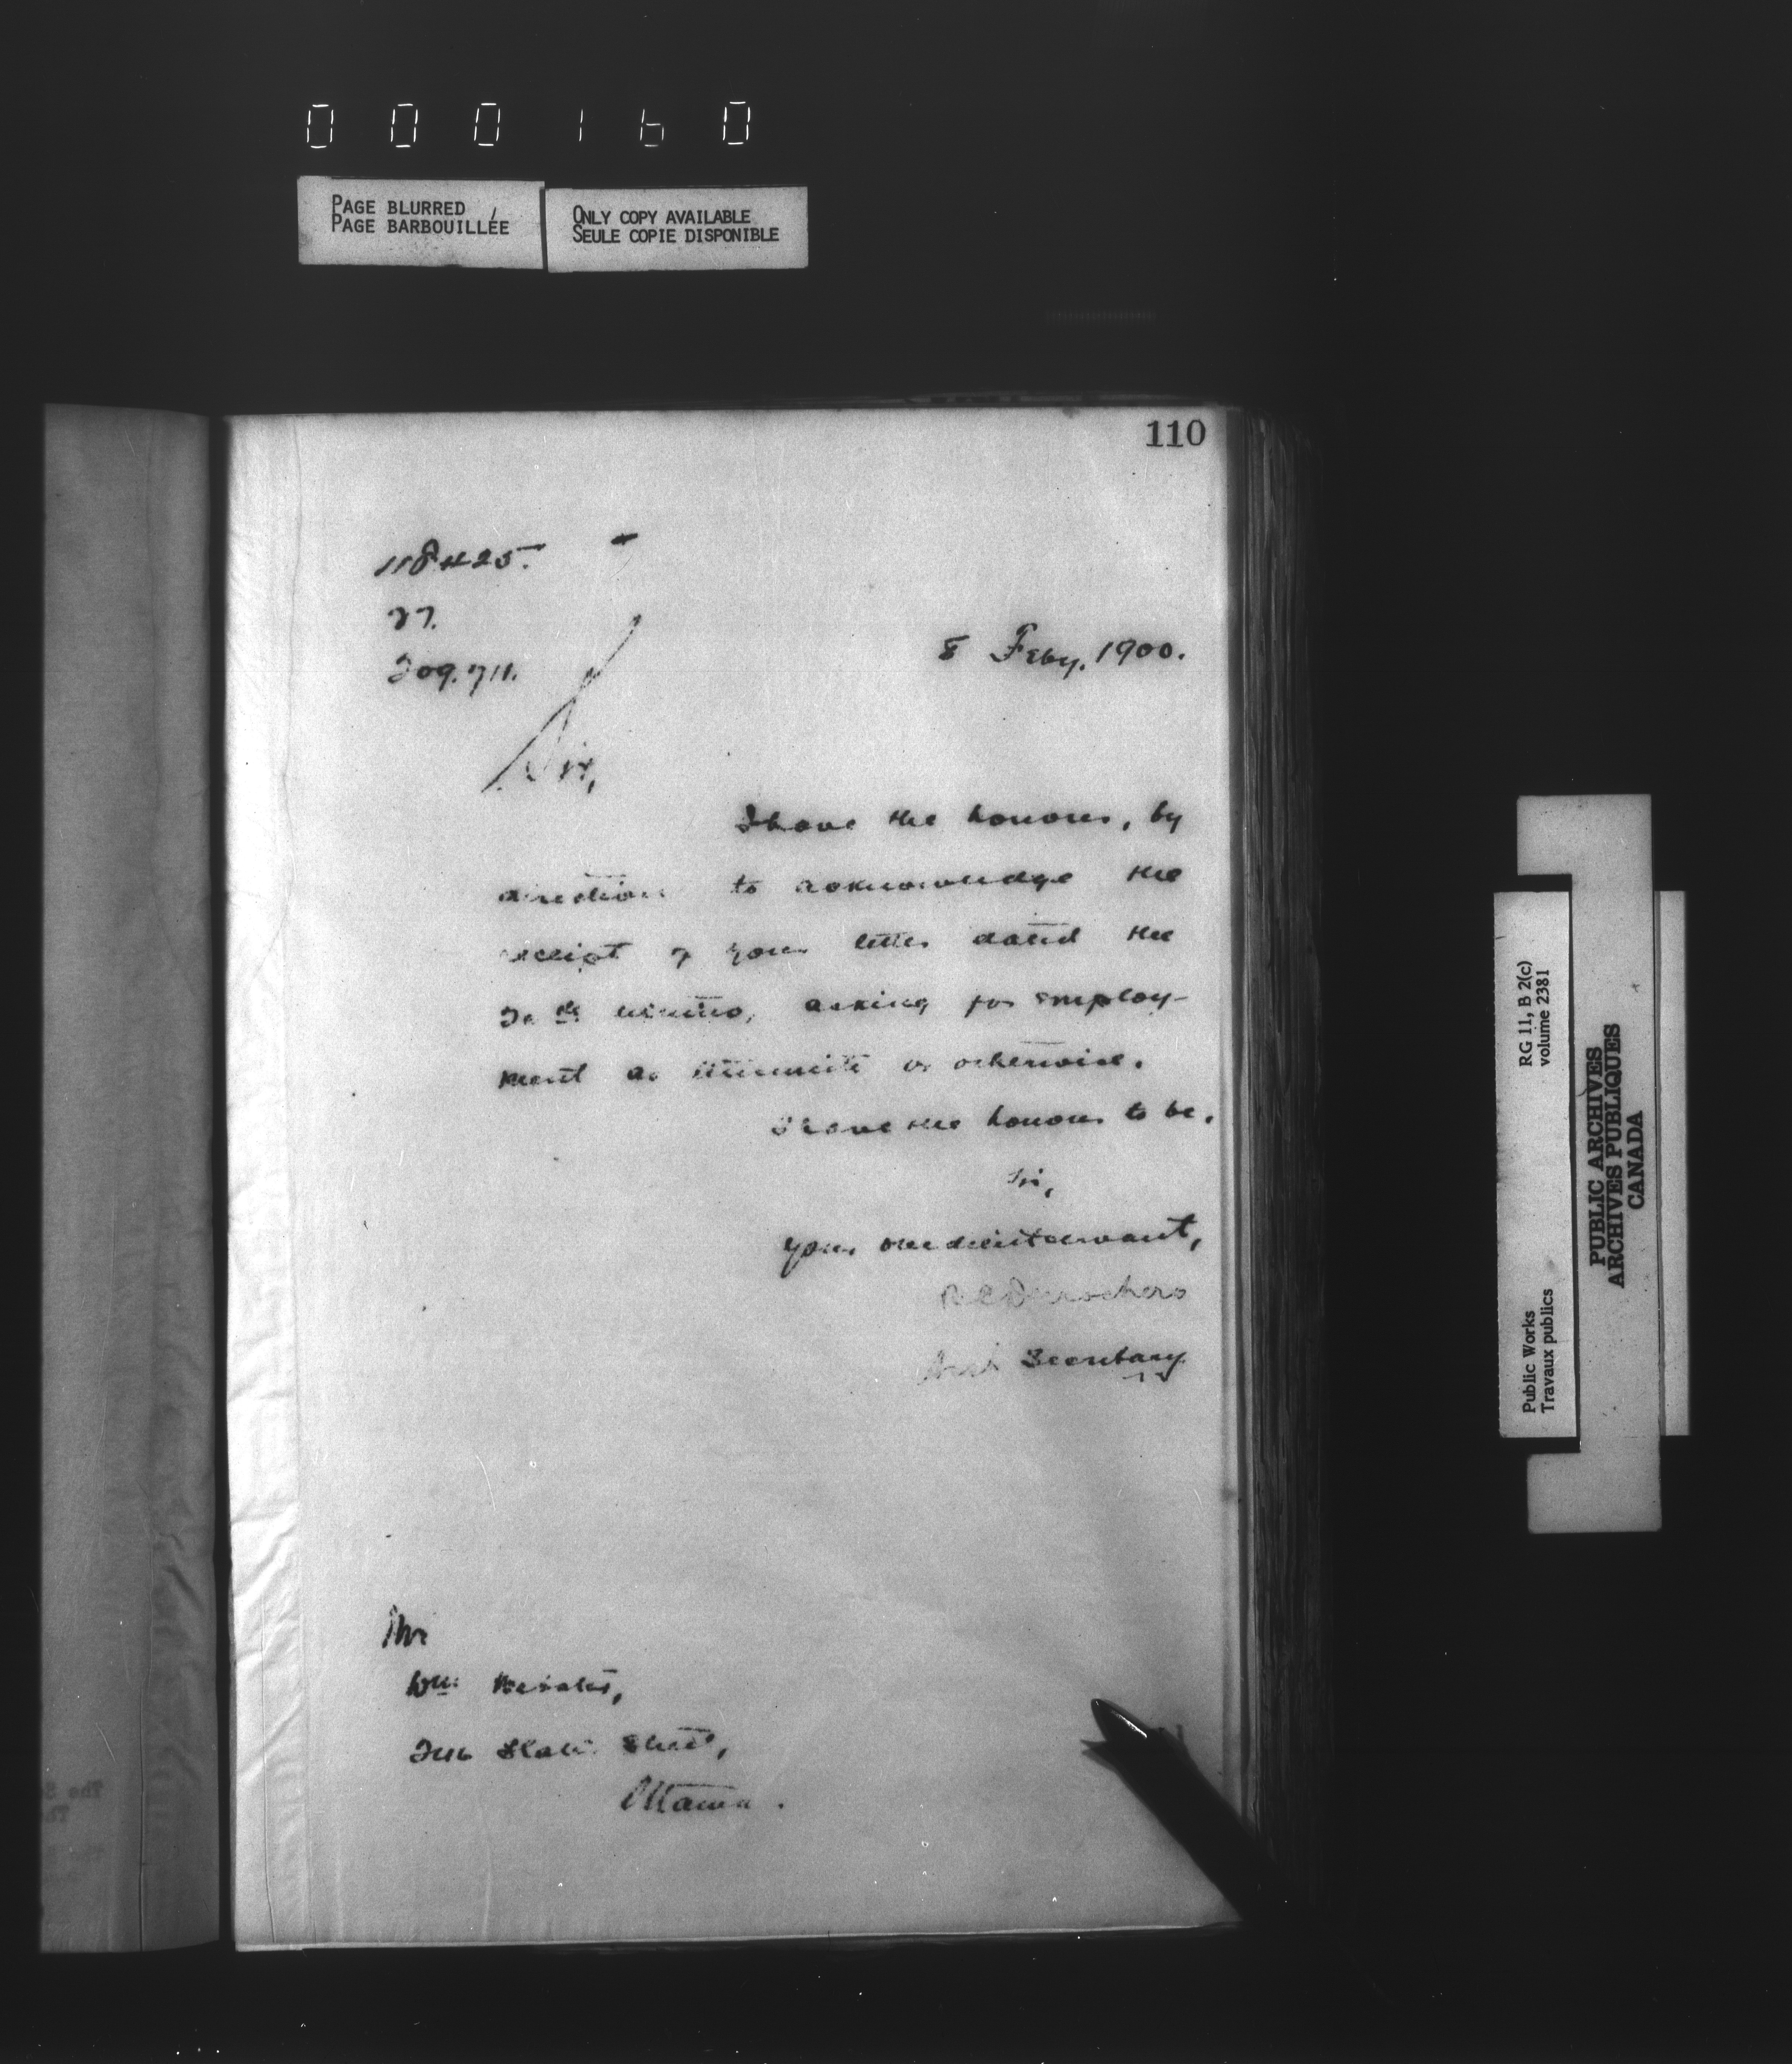 000160
PAGE BLURRED
PAGE BARBOUILLÉE
ONLY COPY AVAILABLE
SEULE COPIE DISPONIBLE
110
118425.
27.
209.711.
8 Feby. 1900.
Sir,
I have the honour, by
direction to acknowledge the
receipt of your letter dated the
ultimo, asking for employ-
ment as or otherwise.
I have the honour to be,
Sir,
Your obedient servant,
Secretary
Mr
Wm.
Street,
Ottawa.
RG 11, B 2(c)
volume 2381
Public Works
Travaux publics
PUBLIC ARCHIVES
ARCHIVES PUBLIQUES
CANADA